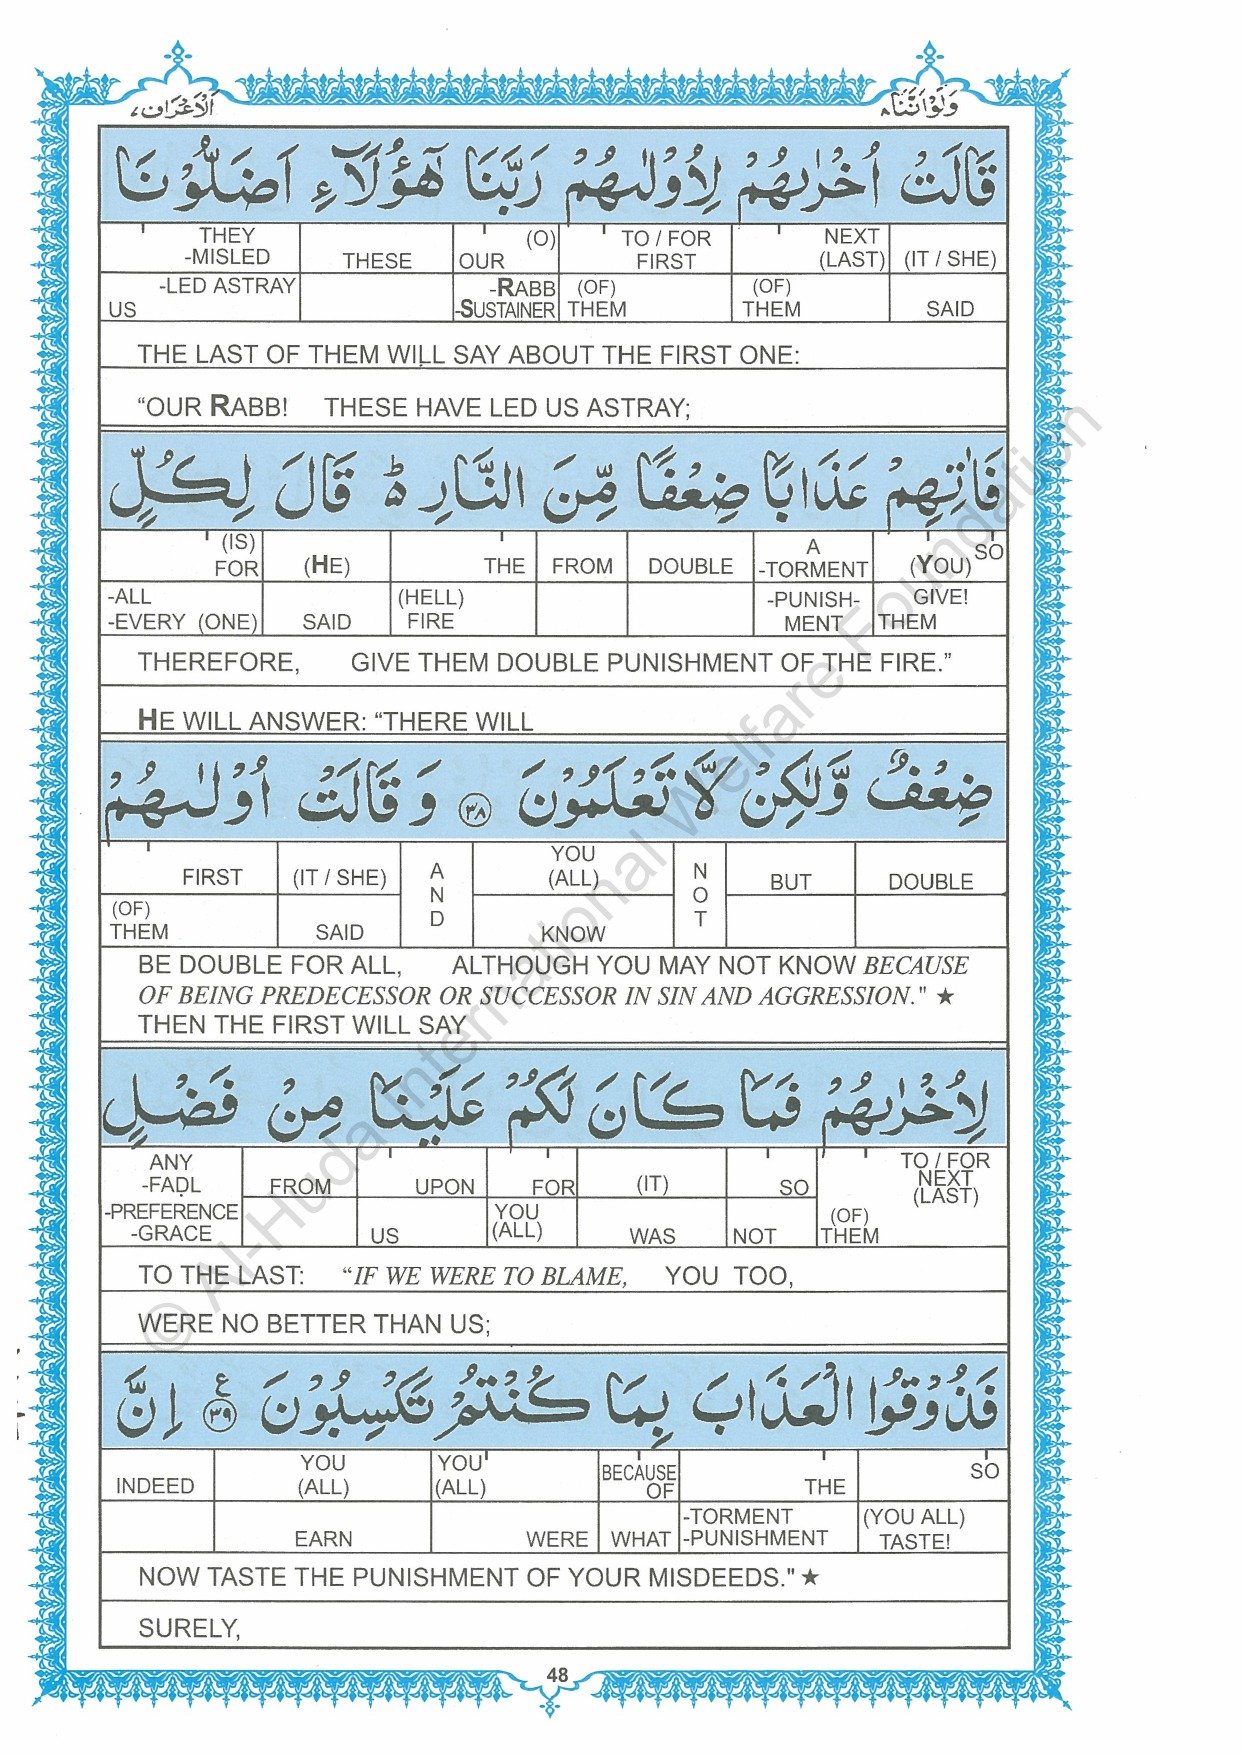 الاعراف ٧
ولواننا ٨
قَالَتْ اُخْرٰىهُمْ لِاُوْلٰىهُمْ رَبَّنَا هٰٓؤُلَآءِ اَضَلُّوْنَا
THEY -MISLED THESE OUR (O) TO / FOR FIRST NEXT (LAST) (IT / SHE)
US -LED ASTRAY -RABB -SUSTAINER (OF) THEM (OF) THEM SAID
THE LAST OF THEM WILL SAY ABOUT THE FIRST ONE:
“OUR RABB! THESE HAVE LED US ASTRAY;
فَاٰتِهِمْ عَذَابًا ضِعْفًا مِّنَ النَّارِ ۵ؕ قَالَ لِكُلٍّ
(IS) FOR (HE) THE FROM DOUBLE A -TORMENT (YOU) SO
-ALL -EVERY (ONE) SAID (HELL) FIRE -PUNISH- MENT GIVE! THEM
THEREFORE, GIVE THEM DOUBLE PUNISHMENT OF THE FIRE.”
HE WILL ANSWER: “THERE WILL
ضِعْفٌ وَّلٰكِنْ لَّا تَعْلَمُوْنَ ٣٨ وَ قَالَتْ اُوْلٰىهُمْ
FIRST (IT / SHE) AND YOU (ALL) NOT BUT DOUBLE
(OF) THEM SAID KNOW
BE DOUBLE FOR ALL, ALTHOUGH YOU MAY NOT KNOW BECAUSE
OF BEING PREDECESSOR OR SUCCESSOR IN SIN AND AGGRESSION." ★
THEN THE FIRST WILL SAY
لِاُخْرٰىهُمْ فَمَا كَانَ لَكُمْ عَلَيْنَا مِنْ فَضْلٍ
ANY -FAḌL FROM UPON FOR (IT) SO TO / FOR NEXT (LAST)
-PREFERENCE -GRACE US YOU (ALL) WAS NOT (OF) THEM
TO THE LAST: “IF WE WERE TO BLAME, YOU TOO,
WERE NO BETTER THAN US;
فَذُوْقُوا الْعَذَابَ بِمَا كُنْتُمْ تَكْسِبُوْنَ ٣٩ ع اِنَّ
INDEED YOU (ALL) YOU (ALL) BECAUSE OF THE SO
EARN WERE WHAT -TORMENT -PUNISHMENT (YOU ALL) TASTE!
NOW TASTE THE PUNISHMENT OF YOUR MISDEEDS." ★
SURELY,
48
© Al-Huda International Welfare Foundation